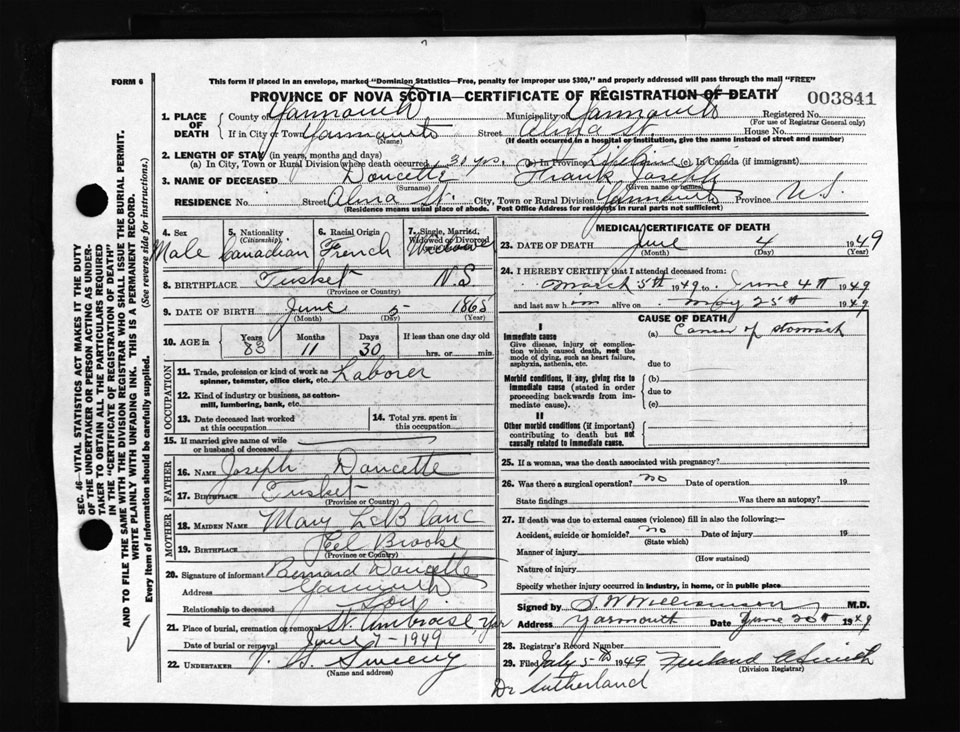 FORM 6
This form if placed in an envelope, marked "Dominion Statistics—Free, penalty for improper use $300," and properly addressed will pass through the mail "FREE"
PROVINCE OF NOVA SCOTIA—CERTIFICATE OF REGISTRATION OF DEATH
003841
1. PLACE OF DEATH County of Yarmouth Municipality of Yarmouth Registered No.
(For use of Registrar General only)
If in City or Town Yarmouth Street Alma St. House No.
(Name) (If death occurred in a hospital or institution, give the name instead of street and number)
2. LENGTH OF STAY (in years, months and days)
(a) In City, Town or Rural Division where death occurred 30 yrs. (b) In Province Lifetime (c) In Canada (if immigrant)
3. NAME OF DECEASED Doucette Frank Joseph
(Surname) (Given name or names)
RESIDENCE No. Street Alma St. City, Town or Rural Division Yarmouth Province N.S.
(Residence means usual place of abode. Post Office Address for residents in rural parts not sufficient)
4. Sex 5. Nationality (Citizenship) 6. Racial Origin 7. Single, Married, Widowed or Divorced
Male Canadian French Widower
8. BIRTHPLACE Tusket N.S
(Province or Country)
9. DATE OF BIRTH June 5 1865
(Month) (Day) (Year)
10. AGE in Years Months Days If less than one day old
83 11 30 hrs. or min.
OCCUPATION
11. Trade, profession or kind of work as spinner, teamster, office clerk, etc. Laborer
12. Kind of industry or business, as cotton-mill, lumbering, bank, etc.
13. Date deceased last worked at this occupation
14. Total yrs. spent in this occupation
15. If married give name of wife or husband of deceased
FATHER
16. NAME Joseph Doucette
17. BIRTHPLACE Tusket
(Province or Country)
MOTHER
18. MAIDEN NAME Mary LeBlanc
19. BIRTHPLACE Eel Brooke
(Province or Country)
20. Signature of informant Bernard Doucette
Address Yarmouth
Relationship to deceased Son
21. Place of burial, cremation or removal St. Ambroise, Yar
Date of burial or removal June 7 - 1949
22. UNDERTAKER V. S. Sweeny
(Name and address)
MEDICAL CERTIFICATE OF DEATH
23. DATE OF DEATH June 4 1949
(Month) (Day) (Year)
24. I HEREBY CERTIFY that I attended deceased from:
March 5th 1949 to June 4th 1949
and last saw him alive on May 25th 1949
CAUSE OF DEATH
I
Immediate cause (a) Cancer of stomach
Give disease, injury or complication which caused death, not the mode of dying, such as heart failure, asphyxia, asthenia, etc.
due to
Morbid conditions, if any, giving rise to immediate cause (stated in order proceeding backwards from immediate cause).
(b)
due to
(c)
II
Other morbid conditions (if important) contributing to death but not causally related to immediate cause.
25. If a woman, was the death associated with pregnancy?
26. Was there a surgical operation? no Date of operation 19
State findings Was there an autopsy?
27. If death was due to external causes (violence) fill in also the following:—
Accident, suicide or homicide? no Date of injury 19
(State which)
Manner of injury
(How sustained)
Nature of injury
Specify whether injury occurred in industry, in home, or in public place
Signed by S. W. Williamson M.D.
Address Yarmouth Date June 20th 1949
28. Registrar's Record Number
29. Filed July 5th 1949
(Division Registrar)
Dr Sutherland
SEC. 46—VITAL STATISTICS ACT MAKES IT THE DUTY
OF THE UNDERTAKER OR PERSON ACTING AS UNDER-
TAKER TO OBTAIN ALL THE PARTICULARS REQUIRED
IN THE "CERTIFICATE OF REGISTRATION OF DEATH"
AND TO FILE THE SAME WITH THE DIVISION REGISTRAR WHO SHALL ISSUE THE BURIAL PERMIT.
WRITE PLAINLY WITH UNFADING INK. THIS IS A PERMANENT RECORD.
Every item of information should be carefully supplied. (See reverse side for instructions.)